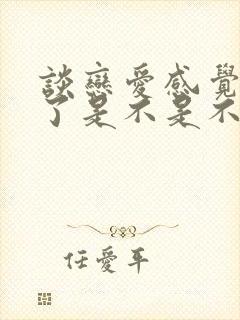 談戀愛感覺
了是不是不
任愛平